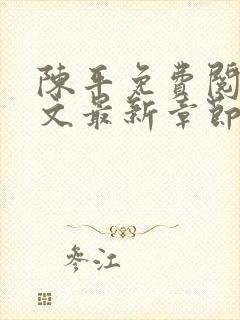 陳平免費閱
文最新章節
參江